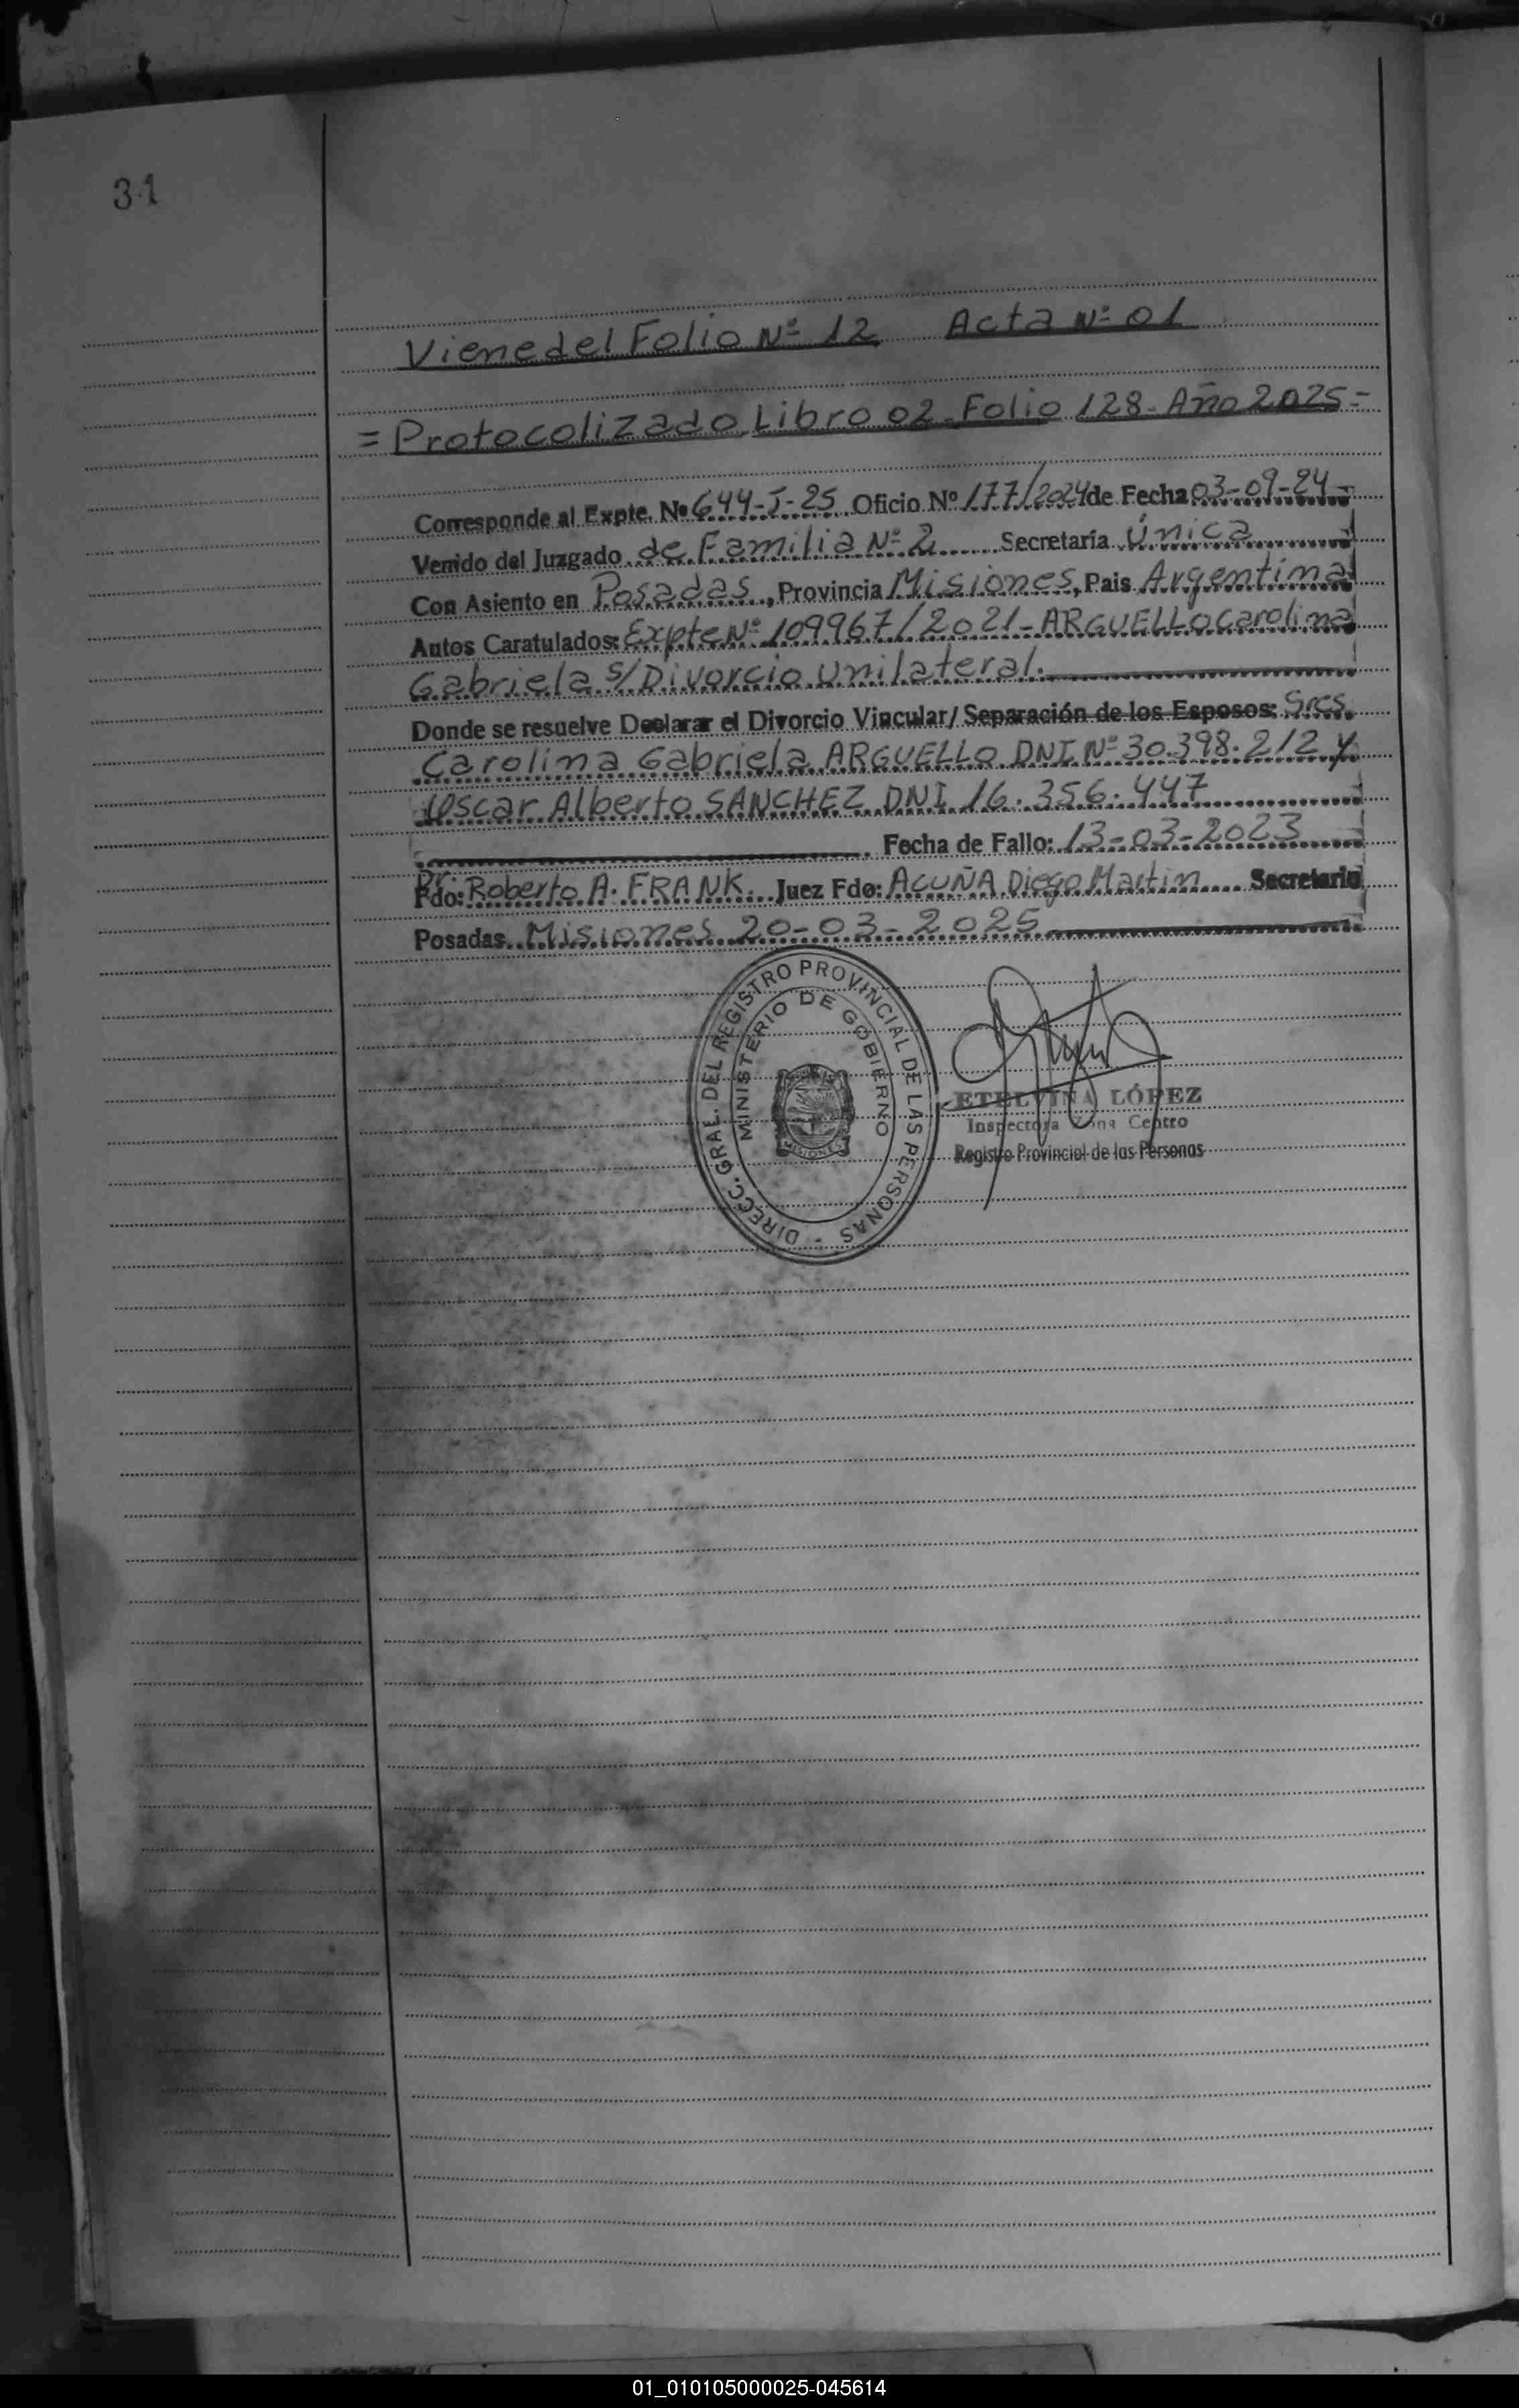 31
Viene del Folio Nº 12 Acta Nº 01
= Protocolizado Libro 02 - Folio 128 - Año 2025 =
Corresponde al Expte. Nº 644-J-25 Oficio Nº 177/2024 de Fecha 03-09-24
Venido del Juzgado de Familia Nº 2 Secretaría Única
Con Asiento en Posadas, Provincia Misiones, Pais Argentina
Autos Caratulados: Expte Nº 109967/2021 - ARGUELLO Carolina
Gabriela s/ Divorcio Unilateral.
Donde se resuelve Declarar el Divorcio Vincular/ Separación de los Esposos: Sres.
Carolina Gabriela ARGUELLO DNI Nº 30.398.212 y
Oscar Alberto SANCHEZ DNI 16.356.447
Fecha de Fallo: 13-03-2023
Fdo: Dr. Roberto A. FRANK Juez Fdo: ACUÑA Diego Martin Secretario
Posadas Misiones 20-03-2025
DIRECC. GRAL. DEL REGISTRO PROVINCIAL DE LAS PERSONAS -
MINISTERIO DE GOBIERNO
MISIONES
ETELVINA LÓPEZ
Inspectora Zona Centro
Registro Provincial de las Personas
01_010105000025-045614